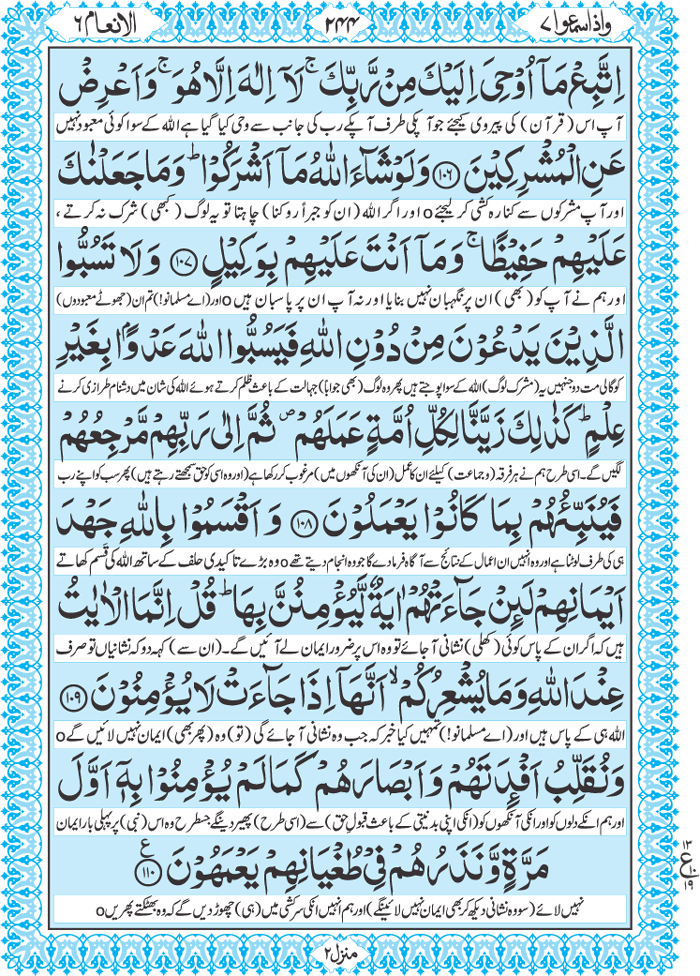 واذاسمعوا ۷ ۲۴۴ الانعام ۶
اِتَّبِعْ مَاۤ اُوْحِیَ اِلَیْكَ مِنْ رَّبِّكَ ۚ لَاۤ اِلٰهَ اِلَّا هُوَ ۚ وَ اَعْرِضْ
آپ اس (قرآن) کی پیروی کیجئے جو آپکی طرف آپکے رب کی جانب سے وحی کیا گیا ہے اللہ کے سوا کوئی معبود نہیں
عَنِ الْمُشْرِكِیْنَ ۝۱۰۶ وَ لَوْ شَآءَ اللّٰهُ مَاۤ اَشْرَكُوْا ؕ وَ مَا جَعَلْنٰكَ
اور آپ مشرکوں سے کنارہ کشی کر لیجئے o اور اگر اللہ (ان کو جبراً روکنا) چاہتا تو یہ لوگ (کبھی) شرک نہ کرتے ،
عَلَیْهِمْ حَفِیْظًا ۚ وَ مَاۤ اَنْتَ عَلَیْهِمْ بِوَكِیْلٍ ۝۱۰۷ وَ لَا تَسُبُّوا
اور ہم نے آپ کو (بھی) ان پر نگہبان نہیں بنایا اور نہ آپ ان پر پاسبان ہیں o اور (اے مسلمانو!) تم ان (جھوٹے معبودوں)
الَّذِیْنَ یَدْعُوْنَ مِنْ دُوْنِ اللّٰهِ فَیَسُبُّوا اللّٰهَ عَدْوًۢا بِغَیْرِ
کو گالی مت دو جنہیں یہ (مشرک لوگ) اللہ کے سوا پوجتے ہیں پھر وہ لوگ (بھی جواباً) جہالت کے باعث ظلم کرتے ہوئے اللہ کی شان میں دشنام طرازی کرنے
عِلْمٍ ؕ كَذٰلِكَ زَیَّنَّا لِكُلِّ اُمَّةٍ عَمَلَهُمْ ۪ ثُمَّ اِلٰی رَبِّهِمْ مَّرْجِعُهُمْ
لگیں گے۔ اسی طرح ہم نے ہر فرقہ (و جماعت) کیلئے ان کا عمل (ان کی آنکھوں میں) مرغوب کر رکھا ہے (اور وہ اسی کو حق سمجھتے رہتے ہیں) پھر سب کو اپنے رب
فَیُنَبِّئُهُمْ بِمَا كَانُوْا یَعْمَلُوْنَ ۝۱۰۸ وَ اَقْسَمُوْا بِاللّٰهِ جَهْدَ
ہی کی طرف لوٹنا ہے اور وہ انہیں ان اعمال کے نتائج سے آگاہ فرما دے گا جو وہ انجام دیتے تھے o وہ بڑے تاکیدی حلف کے ساتھ اللہ کی قسم کھاتے
اَیْمَانِهِمْ لَىِٕنْ جَآءَتْهُمْ اٰیَةٌ لَّیُؤْمِنُنَّ بِهَا ؕ قُلْ اِنَّمَا الْاٰیٰتُ
ہیں کہ اگر ان کے پاس کوئی (کھلی) نشانی آ جائے تو وہ اس پر ضرور ایمان لے آئیں گے۔ (ان سے) کہہ دو کہ نشانیاں تو صرف
عِنْدَ اللّٰهِ وَ مَا یُشْعِرُكُمْ ۙ اَنَّهَاۤ اِذَا جَآءَتْ لَا یُؤْمِنُوْنَ ۝۱۰۹
اللہ ہی کے پاس ہیں اور (اے مسلمانو!) تمہیں کیا خبر کہ جب وہ نشانی آ جائے گی (تو) وہ (پھر بھی) ایمان نہیں لائیں گے o
وَ نُقَلِّبُ اَفْـِٕدَتَهُمْ وَ اَبْصَارَهُمْ كَمَا لَمْ یُؤْمِنُوْا بِهٖۤ اَوَّلَ
اور ہم انکے دلوں کو اور انکی آنکھوں کو (انکی اپنی بدنیتی کے باعث قبولِ حق) سے (اسی طرح) پھیر دینگے جسطرح وہ اس (نبی) پر پہلی بار ایمان
مَرَّةٍ وَّ نَذَرُهُمْ فِیْ طُغْیَانِهِمْ یَعْمَهُوْنَ ۝۱۱۰ ع
نہیں لائے (سو وہ نشانی دیکھ کر بھی ایمان نہیں لائینگے) اور ہم انہیں انکی سرکشی میں (ہی) چھوڑ دیں گے کہ وہ بھٹکتے پھریں o
۱۳
ع ۱۰
۱۹
منزل ۲